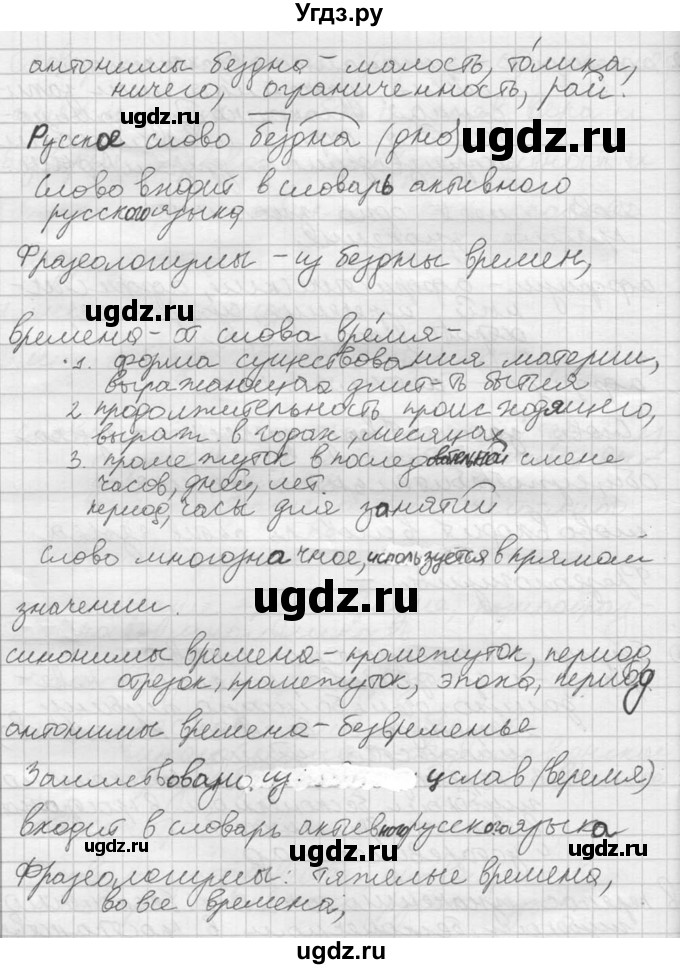 Угдз.ру
антонимы бездна – малость, то́лика,
ничего, ограниченность, рай.
ugdz.ru ugdz.ru
Русское слово бездна (дно)
Слово входит в словарь активного
русского языка
Фразеологизмы – из бездны времен,
ugdz.ru ugdz.ru
времена – от слова вре́мя –
1. форма существования материи,
выражающая длит-ть бытия
2 продолжительность происходящего,
выраж. в годах, месяцах
3. промежуток в последовательной смене
часов, дней, лет.
период, часы для занятий
слово многозначное, используется в прямом
ugdz.ru ugdz.ru
значении.
синонимы времена – промежуток, период,
отрезок, промежуток, эпоха, период
антонимы времена – безвременье
Заимствовано из цслав (веремя)
ugdz.ru ugdz.ru
входит в словарь активного русского языка
Фразеологизмы: тяжелые времена,
во все времена,
ugdz.ru ugdz.ru